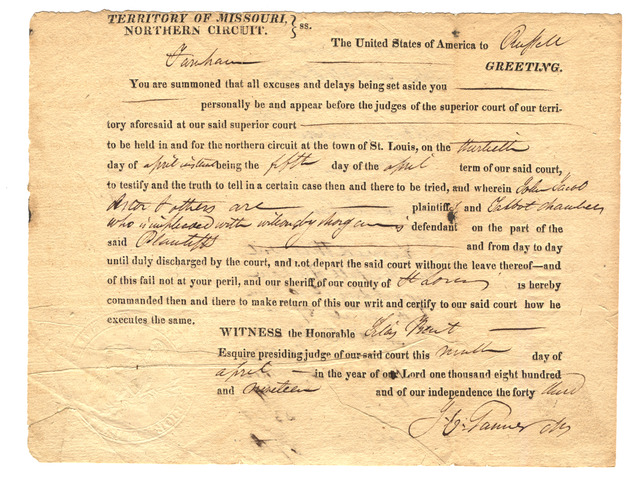 TERRITORY OF MISSOURI, } ss.
NORTHERN CIRCUIT.
The United States of America to Russell
Farnham GREETING.
You are summoned that all excuses and delays being set aside you
personally be and appear before the judges of the superior court of our terri-
tory aforesaid at our said superior court
to be held in and for the northern circuit at the town of St. Louis, on the thirtieth
day of april instant being the fifth day of the april term of our said court,
to testify and the truth to tell in a certain case then and there to be tried, and wherein John Jacob
Astor & others are plaintiffs and Talbot Chambers
who is impleaded with willoughby morgan is defendant on the part of the
said Plaintiffs and from day to day
until duly discharged by the court, and not depart the said court without the leave thereof—and
of this fail not at your peril, and our sheriff of our county of St Louis is hereby
commanded then and there to make return of this our writ and certify to our said court how he
executes the same.
WITNESS the Honorable
Esquire presiding judge of our said court this ninth day of
april in the year of our Lord one thousand eight hundred
and nineteen and of our independence the forty third